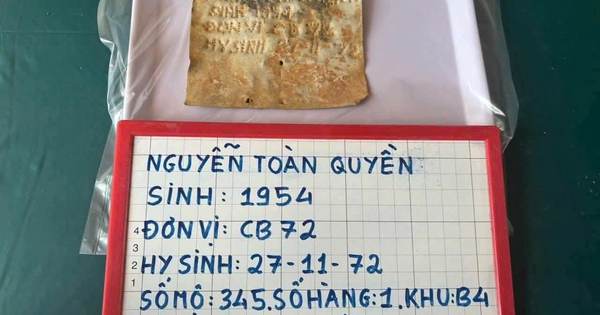 SINH
ĐƠN VỊ CB 72
HY SINH 27-11-72
NGUYỄN TOÀN QUYỀN
SINH: 1954
ĐƠN VỊ: CB72
HY SINH: 27-11-72
SỐ MỘ: 345. SỐ HÀNG: 1. KHU: B4